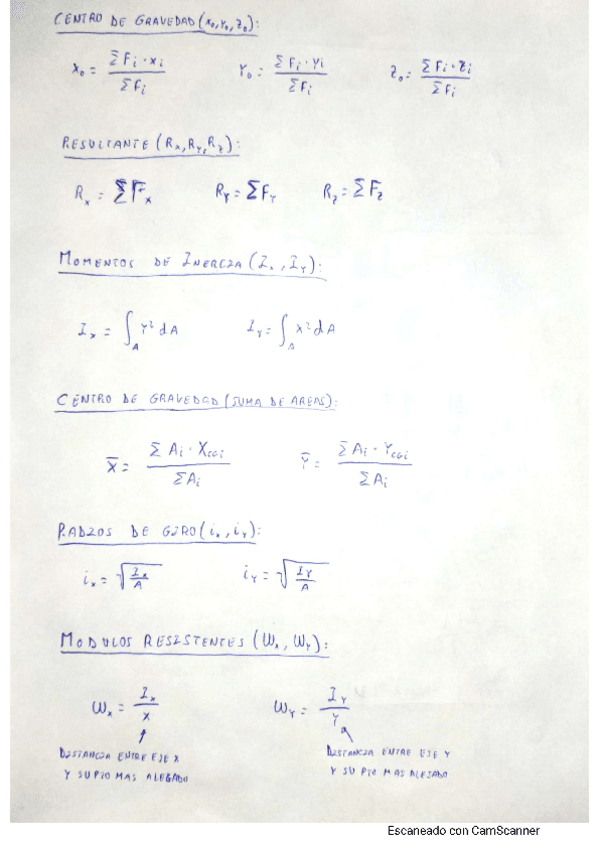 CENTRO DE GRAVEDAD (X₀,Y₀,Z₀):
X₀ = ΣFi·xi / ΣFi Y₀ = ΣFi·Yi / ΣFi Z₀ = ΣFi·Zi / ΣFi
RESULTANTE (Rx,Ry,Rz):
Rx = ΣFx Ry = ΣFy Rz = ΣFz
MOMENTOS DE INERCIA (Ix, Iy):
Ix = ∫A Y² dA Iy = ∫A X² dA
CENTRO DE GRAVEDAD (SUMA DE AREAS):
X̄ = ΣAi·Xcgi / ΣAi Ȳ = ΣAi·Ycgi / ΣAi
RADIOS DE GIRO (ix, iy):
ix = √(Ix/A) iy = √(Iy/A)
MODULOS RESISTENTES (Wx, Wy):
Wx = Ix / X Wy = Iy / Y
DISTANCIA ENTRE EJE X DISTANCIA ENTRE EJE Y
Y SU PTO MAS ALEGADO Y SU PTO MAS ALEJADO
Escaneado con CamScanner